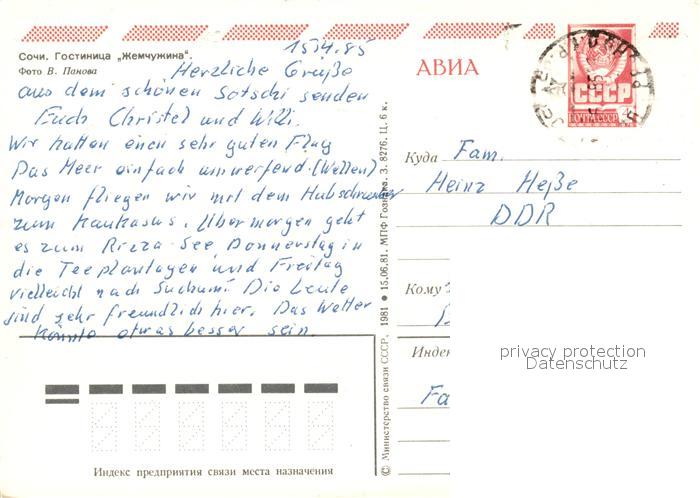 Сочи. Гостиница „Жемчужина".
Фото В. Панова
15.4.85
Herzliche Grüße
aus dem schönen Sotschi senden
Euch Christel und Willi.
Wir hatten einen sehr guten Flug
Das Meer einfach umwerfend. (Wellen)
Morgen fliegen wir mit dem Hubschrauber
zum Kaukasus. Übermorgen geht
es zum Rizza-See, Donnerstag in
die Teeplantagen und Freitag
vielleicht nach Suchumi. Die Leute
sind sehr freundlich hier. Das Wetter
könnte etwas besser sein.
Индекс предприятия связи места назначения
© Министерство связи СССР, 1981 ● 15.06.81. МПФ Гознака. З. 8276. Ц. 6 к.
АВИА
СССР
ПОЧТА СССР
Куда Fam.
Heinz Heße
DDR
Кому
Индек
Fa
privacy protection
Datenschutz